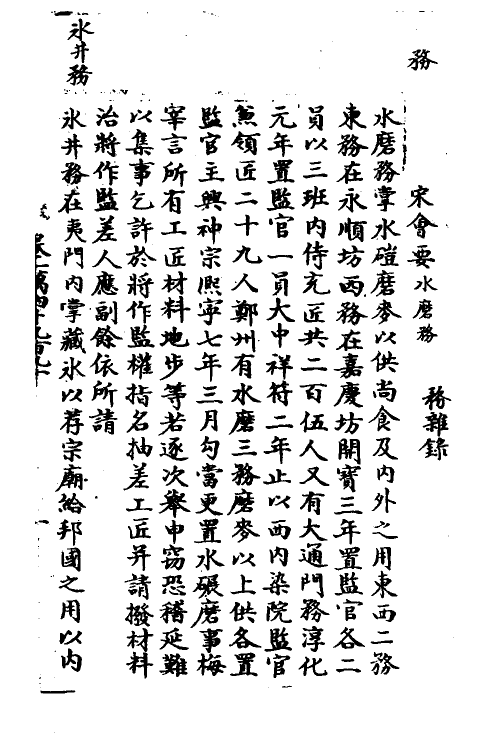 務
宋會要水磨務
務雜錄
水磨務掌水磑磨麥以供尚食及內外之用東西二務
東務在永順坊西務在嘉慶坊開寶三年置監官各二
員以三班內侍充匠共二百伍人又有大通門務淳化
元年置監官一員大中祥符二年止以西內染院監官
兼領匠二十九人鄭州有水磨三務磨麥以上供各置
監官主興神宗熈寧七年三月勾當更置水碾磨事梅
宰言所有工匠材料地步等若逐次舉申竊恐稽延難
以集事乞許於將作監權指名抽差工匠并請撥材料
治將作監差人應副餘依所請
氷井務
氷井務在夷門內掌藏氷以荐宗廟給邦國之用以內